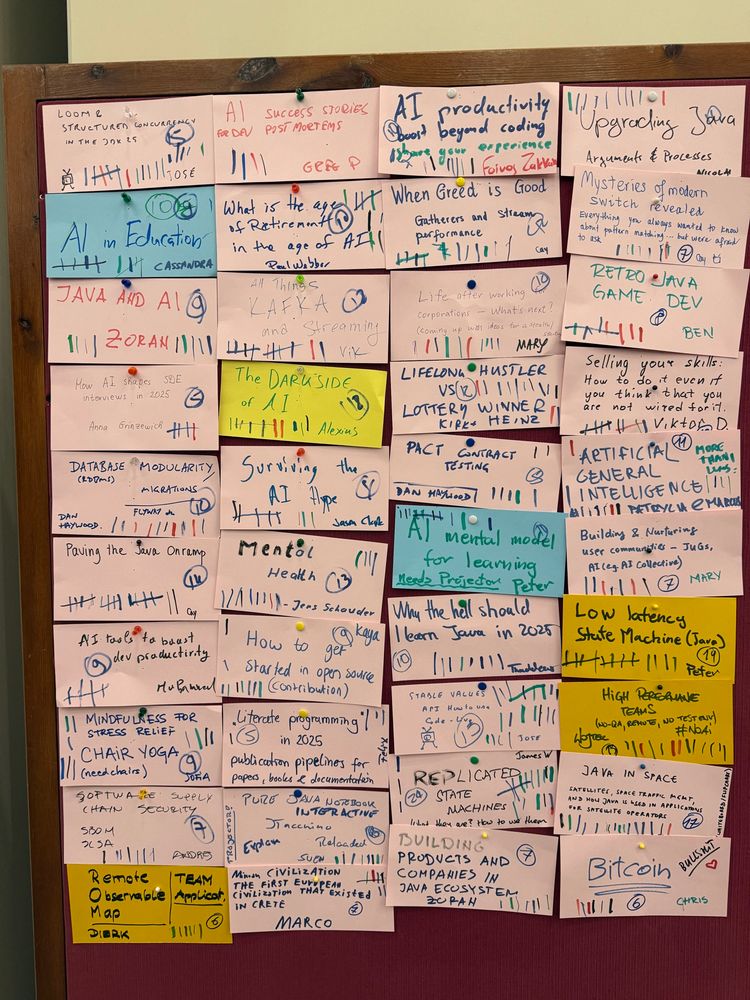 LOOM &
STRUCTURED CONCURRENCY
IN THE JDK 25
5
JOSE
AI SUCCESS STORIES
FOR DEV POST MORTEMS
GREG P
AI productivity
boost beyond coding
share your experience
Foivos
Upgrading Java
Arguments & Processes
AI in Education
CASSANDRA
What is the age
of Retirement
in the age of AI
Paul Webber
When Greed is Good
Gatherers and stream
performance
Cay
Mysteries of modern
switch revealed
Everything you always wanted to know
about pattern matching... but were afraid
to ask
7
Cay
JAVA AND AI
9
ZORAN
All Things
KAFKA
12
and Streaming
Vik
Life after working
corporations - What's next?
(coming up with ideas for a
MARY
RETRO JAVA
GAME DEV
BEN
How AI shapes SDE
interviews in 2025
Anna
The DARK SIDE
of AI
Alexius
LIFELONG HUSTLER
VS
LOTTERY WINNER
KIRK HEINZ
Selling your skills:
How to do it even if
you think that you
are not wired for it.
Viktor D.
DATABASE MODULARITY
(RDBMS)
MIGRATIONS
FLYWAY
DAN
HAYWOOD.
10
Surviving the
AI Hype
Jason Clark
PACT CONTRACT
TESTING
DAN HAYWOOD
ARTIFICIAL
11
GENERAL
INTELLIGENCE
MORE
THAN
LLMs
PATRYCJA & MARCUS
Paving the Java Onramp
14
Cay
Mental
Health
13
- Jens Schauder
AI mental model
for learning
Needs Projector
Peter
Building & Nurturing
user communities - JUGs,
AI (eg. AI Collective)
7
MARY
AI tools to boost
dev productivity
9
How to get
9
Kaya
started in open source
(contribution)
Why the hell should
I learn Java in 2025
10
Thaddeus
Low latency
State Machine (Java)
19
Peter
MINDFULNESS FOR
STRESS RELIEF
CHAIR YOGA
(need chairs)
9
SOFIA
"Literate programming"
5
in 2025
publication pipelines for
papers, books & documentation
Felix
STABLE VALUES
API
13
JOSE
HIGH PERFORMANCE
TEAMS
(NO-QA, REMOTE, NO TEST ENV)
#NoAI
SOFTWARE SUPPLY
CHAIN SECURITY
SBOM
7
ANDRES
PURE JAVA NOTEBOOK
INTERACTIVE
JTaccuino
Explain Reloaded
SVEN
PROJECTOR
James W
REPLICATED
24
STATE
MACHINES
What they are? How to use them
JAVA IN SPACE
SATELLITES, SPACE TRAFFIC MGMT.
AND HOW JAVA IS USED IN APPLICATIONS
FOR SATELLITE OPERATORS
17
Remote
Observable
Map
TEAM
Applicat.
DIERK
6
Minoan CIVILIZATION
THE FIRST EUROPEAN
CIVILIZATION THAT EXISTED
IN CRETE
7
MARCO
BUILDING
7
PRODUCTS AND
COMPANIES IN
JAVA ECOSYSTEM
ZORAN
Bitcoin
BULLSHIT
6
CHRIS